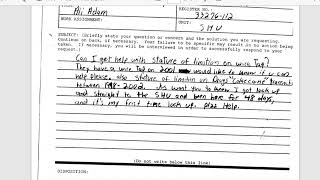 Ali Adam
REGISTER NO.:
33276-112
WORK ASSIGNMENT:
UNIT:
SHU
SUBJECT: (Briefly state your question or concern and the solution you are requesting.
Continue on back, if necessary. Your failure to be specific may result in no action being
taken. If necessary, you will be interviewed in order to successfully respond to your
request.)
Can I get help with stature of limition on wire Tap?
They have a wire Tap on 2001 would like to know if u can
help please. also stature of limition on Drugs "Cokecaine"
between 1998-2002. As want you to know I got lock up
and straight to the SHU and been here for 48 days,
and it's my first time lock up. plaz Help.
(Do not write below this line)
DISPOSITION: